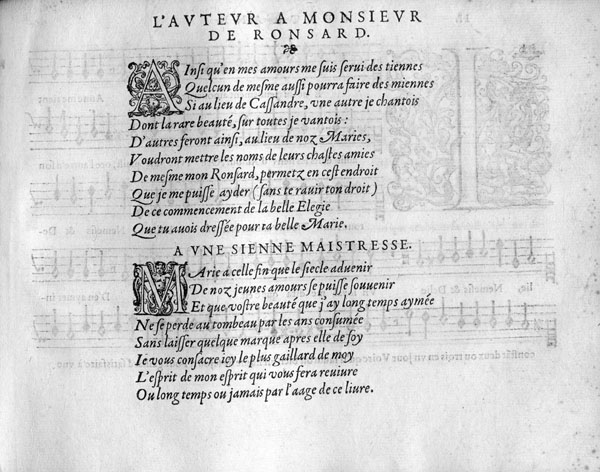 L'AVTEVR A MONSIEVR
DE RONSARD.
AInsi qu'en mes amours me suis serui des tiennes
Quelcun de mesme aussi pourra faire des miennes
Si au lieu de Cassandre, vne autre je chantois
Dont la rare beauté, sur toutes je vantois :
D'autres feront ainsi, au lieu de noz Maries,
Voudront mettre les noms de leurs chastes amies
De mesme mon Ronsard, permetz en cest endroit
Que je me puisse ayder (sans te rauir ton droit)
De ce commencement de la belle Elegie
Que tu auois dressée pour ta belle Marie.
A VNE SIENNE MAISTRESSE.
MArie a celle fin que le siecle aduenir
De noz jeunes amours se puisse souuenir
Et que vostre beauté que j'ay long temps aymée
Ne se perde au tombeau par les ans consumée
Sans laisser quelque marque apres elle de soy
Ie vous consacre icy le plus gaillard de moy
L'esprit de mon esprit qui vous fera reuiure
Ou long temps ou jamais par l'aage de ce liure.